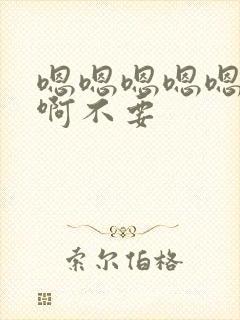 嗯嗯嗯嗯嗯
啊不要
索尔伯格